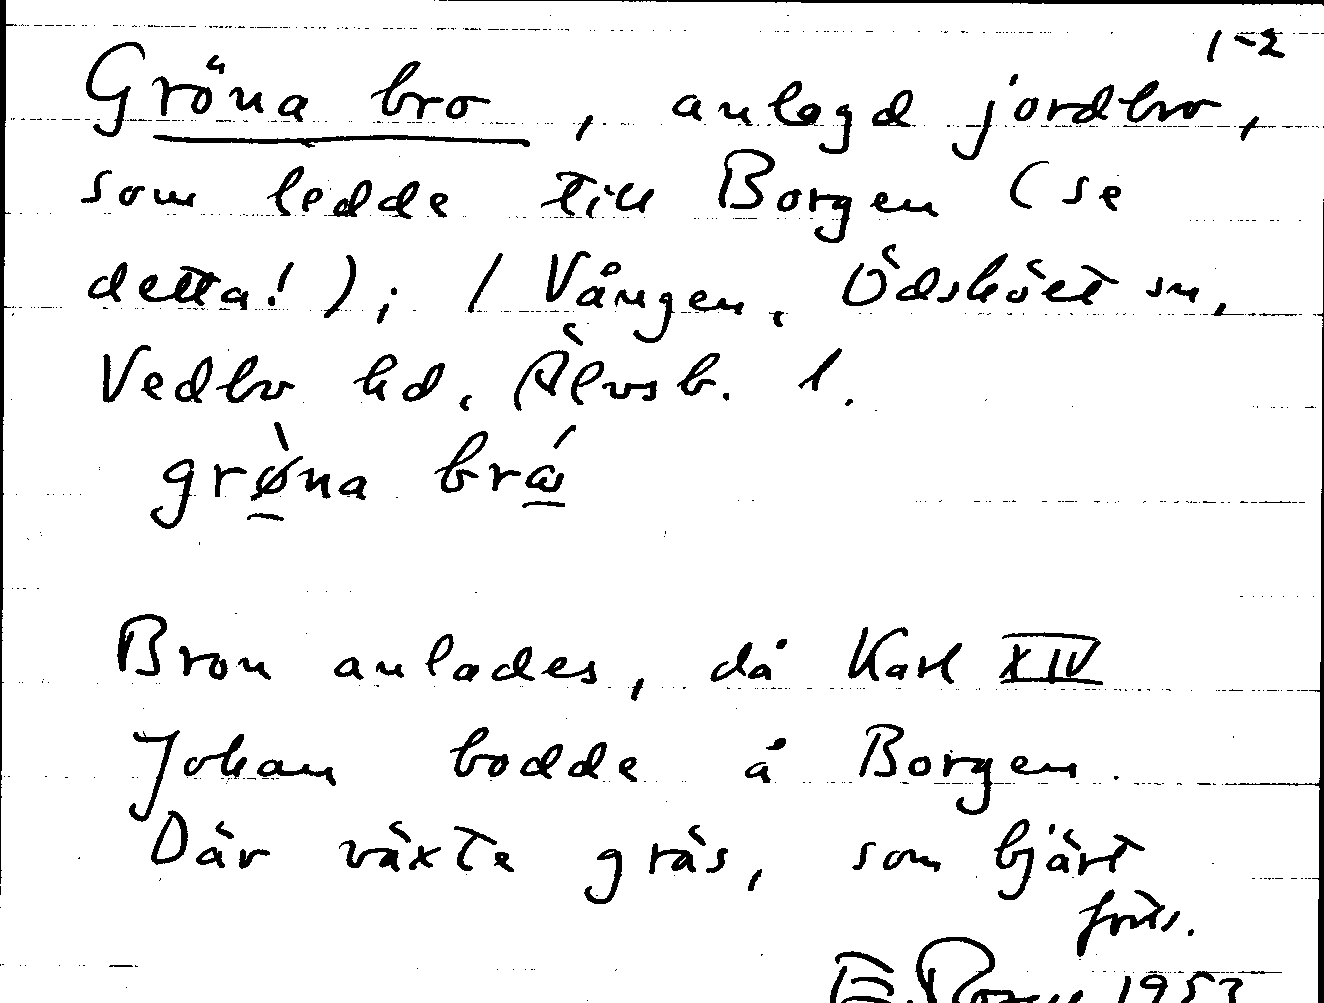 1-2
Gröna bro, anlagd jordbro,
som ledde till Borgen (se
detta!); / Vången, Ödsköet sn,
Vedbo hd, Älvsb. l.
grøna brå
Bron anlades, då Karl XIV
Johan bodde å Borgen.
Där växte gräs, som bjärt
E. Rosen 1953